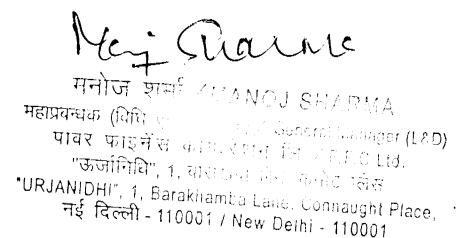 Manoj Sharma
मनोज शर्मा / MANOJ SHARMA
महाप्रबन्धक (विधि General Manager (L&D)
पावर फाइनेंस Ltd.
"ऊर्जानिधि", 1,
"URJANIDHI", 1, Barakhamba Lane, Connaught Place,
नई दिल्ली - 110001 / New Delhi - 110001